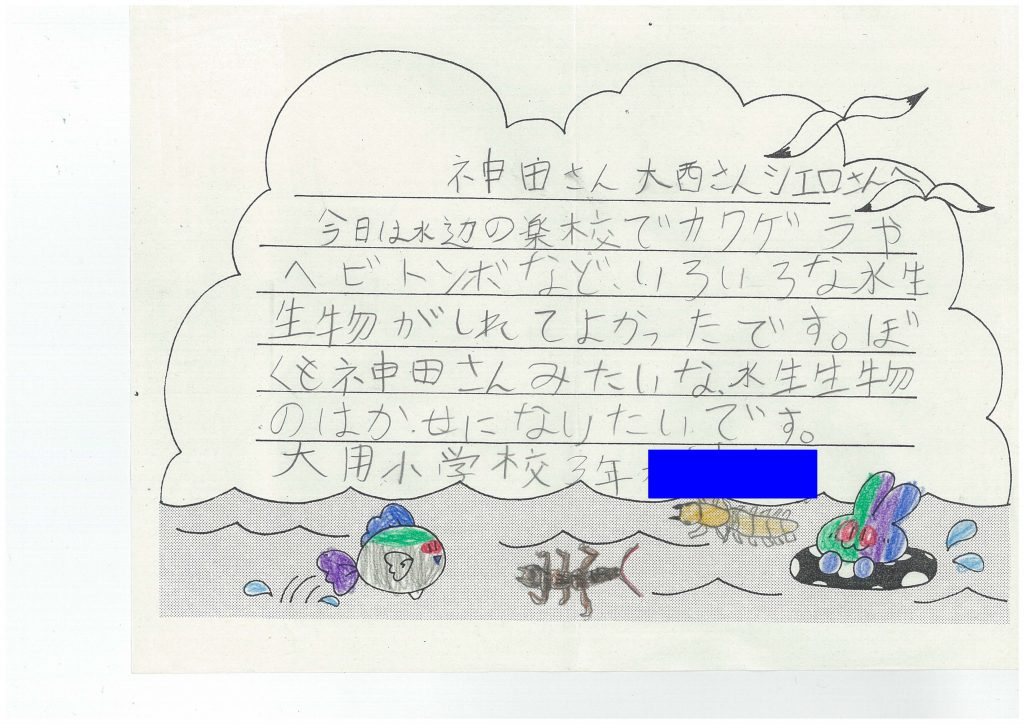 神田さん大西さんシエロさんへ
今日は水辺の楽校でカワゲラや
ヘビトンボなど、いろいろな水生
生物がしれてよかったです。ぼ
くも神田さんみたいな、水生生物
のはかせになりたいです。
大用小学校3年